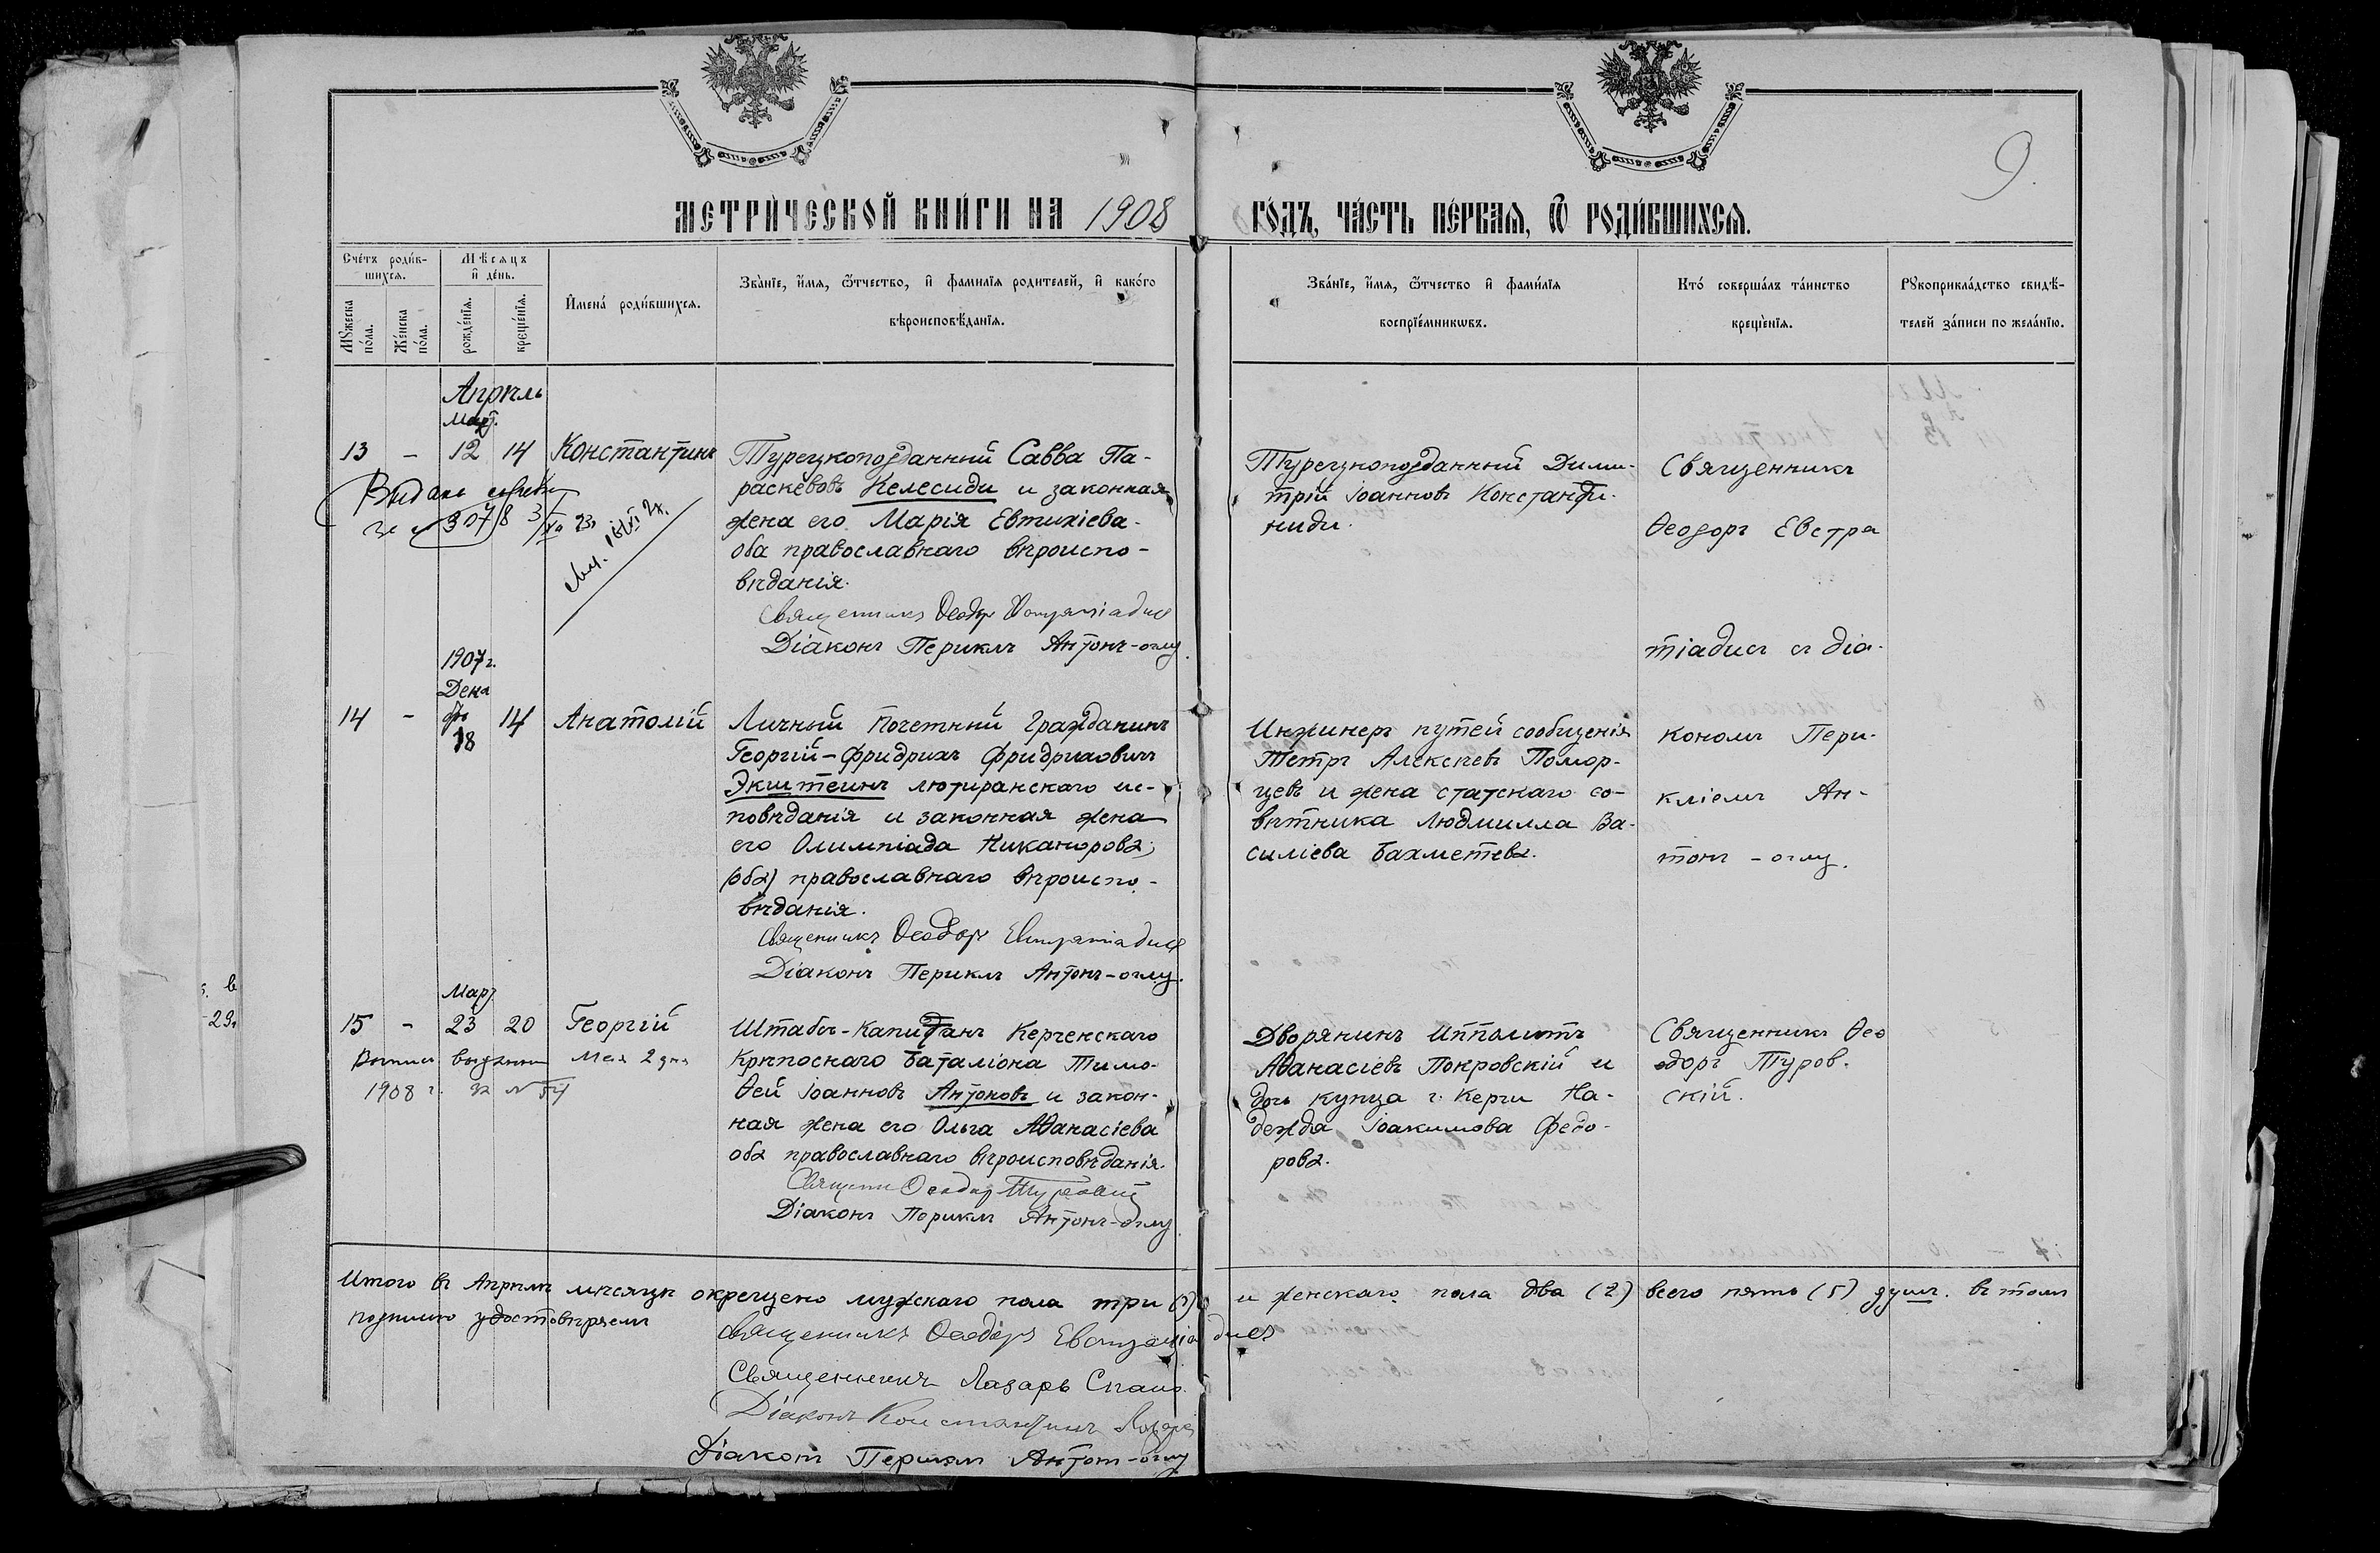 9.
МЕТРИ́ЧЕСКОЙ КНИ́ГИ НА 1908 ГО́ДЪ, ЧА́СТЬ ПЕ́РВАѦ, Ѿ РОДИ́ВШИХСѦ.
Сче́тъ роди́в-
шихсѧ.
Мꙋжеска по́ла.
Же́нска по́ла.
Мѣсѧцъ
и де́нь.
рожде́нїѧ.
креще́нїѧ.
Имена́ роди́вшихсѧ.
Зва́нїе, и́мѧ, ѻ҆́тчество, и фамилїѧ родителей, и како́го
вѣроисповѣ́данїѧ.
Зва́нїе, и́мѧ, ѻ҆́тчество и фами́лїѧ
воспрїе́мникѡвъ.
Кто́ соверша́лъ та́инство
креще́нїѧ.
Рꙋкоприкла́дство свидѣ́-
телей за́писи по жела́нїю.
Апрѣль
Март.
13 - 12 14 Константинъ
Турецкоподданный Савва Па-
раскевовъ Келесиди и законная
жена его Марія Евтихіева-
оба православнаго вѣроиспо-
вѣданія.
Священникъ Ѳеодоръ
Діаконъ Периклъ Антонъ-оглу.
Турецкоподданный Дими-
трій Іоанновъ Константи-
ниди.
Священникъ
Ѳеодоръ Евстра
тіадисъ съ діа-
кономъ Пери-
кліемъ Ан-
тонъ-оглу.
Видано
3078
1907 г.
Дека
брь
18
14 - 14 Анатолій
Личный почетный гражданинъ
Георгій-Фридрихъ Фридриховичъ
Экштеинъ лютеранскаго ис-
повѣданія и законная жена
его Олимпіада Никанорова;
(оба) православнаго вѣроиспо-
вѣданія.
Священникъ Ѳеодоръ Евстратіадисъ
Діаконъ Периклъ Антонъ-оглу.
Инжинеръ путей сообщенія
Петръ Алексѣевъ Помор-
цевъ и жена статскаго со-
вѣтника Людмилла Ва-
силіева Бахметева.
Март
15 - 23 20 Георгій
Выпись выдана Мая 2 дня
1908 г. за № 54
Штабсъ-Капитанъ Керченскаго
Крѣпоснаго баталіона Тимо-
ѳей Іоанновъ Антоновъ и закон-
ная жена его Ольга Аѳанасіева
оба православнаго вѣроисповѣданія.
Священн Ѳеодоръ Туровскій
Діаконъ Периклъ Антонъ-оглу
Дворянинъ Ипполитъ
Аѳанасіевъ Покровскій и
дочь купца г. Керчи На-
дежда Іоакимова Федо-
рова.
Священникъ Ѳео
доръ Туров-
скій.
Итого въ Апрѣлѣ мѣсяцѣ окрещено мужскаго пола три (3) и женскаго пола два (2) всего пять (5) душъ. въ томъ
подписью удостовѣряемъ
Священникъ Ѳеодоръ Евстратіадисъ
Священникъ Лазарь
Діаконъ Константинъ
Діаконъ Периклъ Антонъ-оглу